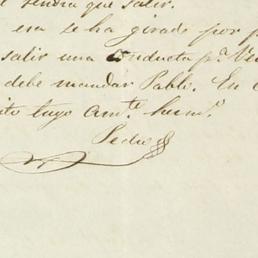 tendra que salir.
era se ha girado por
salir una conducta pa. Ve
debe mandar Pablo. En
tuyo Amte. herm.
Pedro